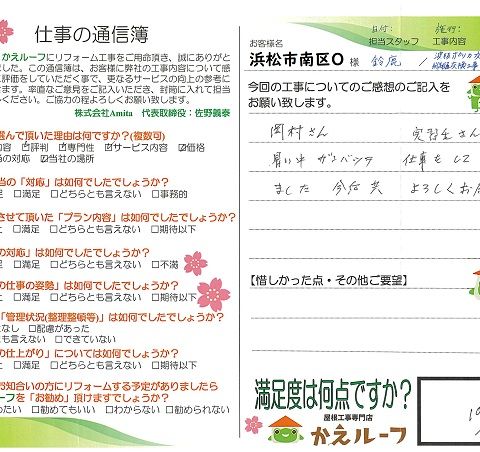 仕事の通信簿
かえルーフにリフォーム工事をご用命頂き、誠にありがと
した。この通信簿は、お客様に弊社の工事内容について感
と評価をしていただく事で、更なるサービスの向上の参考に
ます。率直なご意見をご記入いただき、封筒に入れて担当
しください。ご協力の程よろしくお願い致します。
株式会社Amita 代表取締役：佐野義泰
選んで頂いた理由は何ですか?(複数可)
内容 ☑評判 ☑専門性 ☑サービス内容 ☑価格
当の対応 ☑当社の場所
当の「対応」は如何でしたでしょうか?
足 □満足 □どちらとも言えない □事務的
させて頂いた「プラン内容」は如何でしたでしょうか?
足 □満足 □どちらとも言えない □期待以下
の対応」は如何でしたでしょうか?
足 □満足 □どちらとも言えない □不満
の仕事の姿勢」は如何でしたでしょうか?
足 □満足 □どちらとも言えない □期待以下
「管理状況(整理整頓等)」は如何でしたでしょうか?
なし □配慮があった
も言えない □できていない
の仕上がり」については如何でしたでしょうか?
足 □満足 □どちらとも言えない □期待以下
お知合いの方にリフォームする予定がありましたら
ルーフを「お勧め」頂けますでしょうか?
めたい □勧めてもいい □わからない □勧められない
お客様名
浜松市南区O 様
日付:
担当スタッフ
鈴鹿
種別:
工事内容
今回の工事についてのご感想のご記入を
お願い致します。
岡村さん 実習生さん
暑い中 ガンバッテ 仕事をして
ました 今后共 よろしくお
【惜しかった点・その他ご要望】
満足度は何点ですか?
屋根工事専門店
かえルーフ